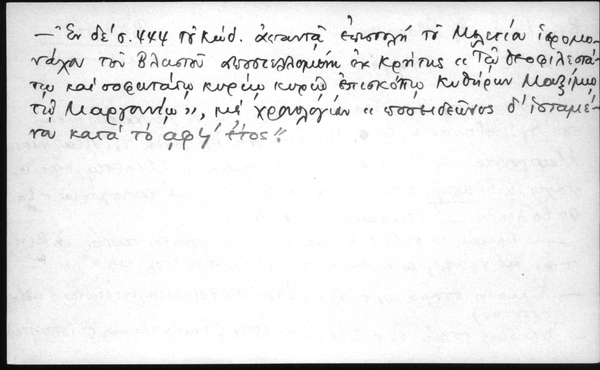 — Ἐν δέ σ. 444 τοῦ Κώδ. ἀπαντᾷ ἐπιστολή τοῦ Μελετίου ἱερομο-
νάχου τοῦ Βλαστοῦ ἀποστελλομένη ἐκ Κρήτης « Τῷ θεοφιλεστά-
τῳ καί σοφωτάτῳ κυρίῳ κυρίῳ ἐπισκόπῳ Κυθήρων Μαξίμῳ
τῷ Μαργουνίῳ », μέ χρονολογίαν « ποσειδεῶνος δ' ἱσταμέ-
νου κατά τό αφϟ' ἔτος ».